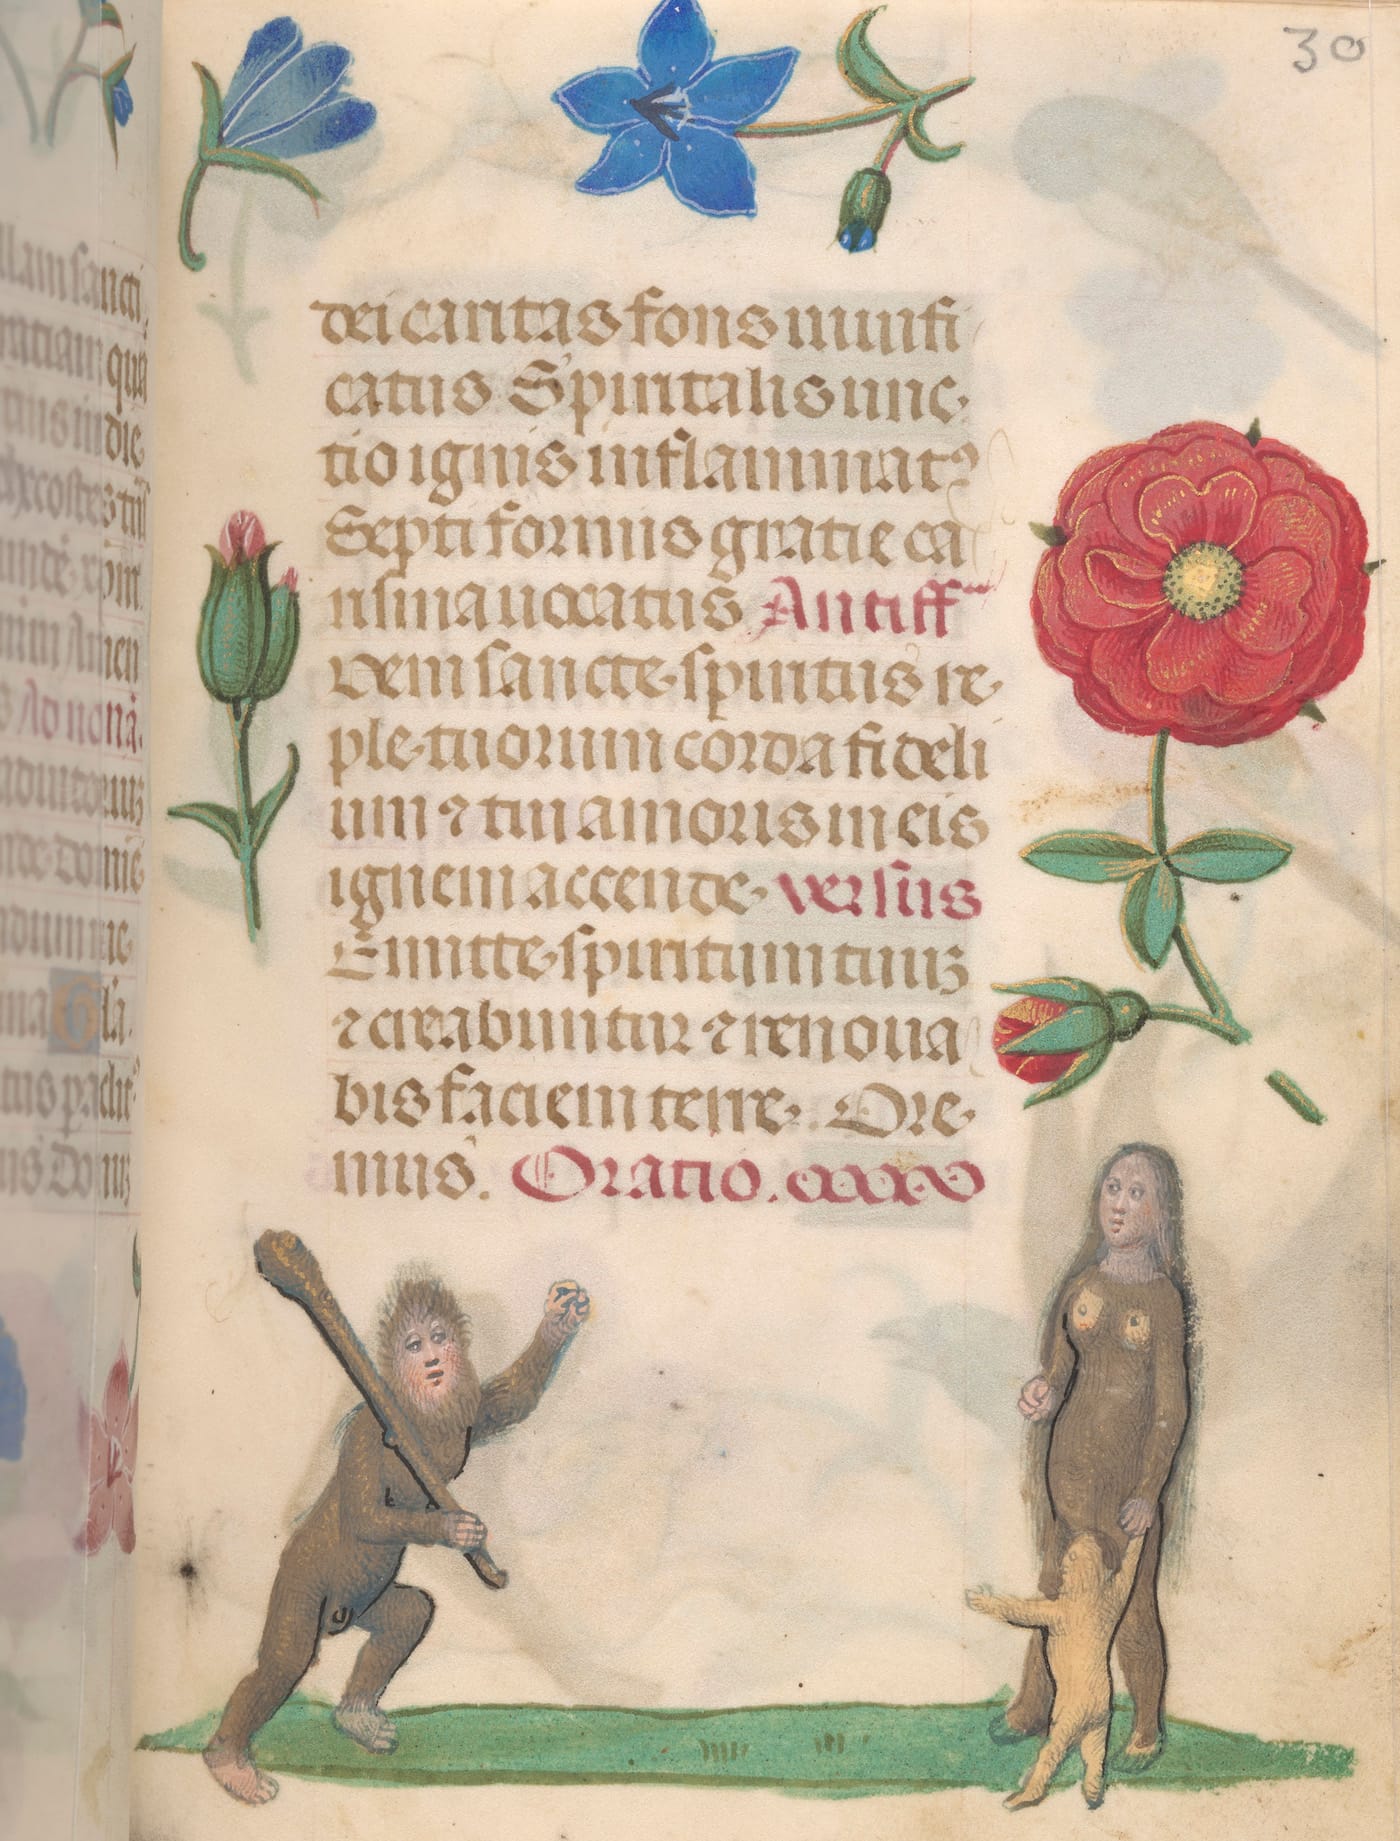 30
dei caritas fons munifi
catus Spiritalis unc
tio ignis inflammatꝰ
Septiformis gratie ca
risma uocatus Antiff
Veni sancte spiritus re
ple tuorum corda fideli
um ⁊ tui amoris in eis
ignem accende versus
Emitte spiritum tuuꝫ
⁊ creabuntur ⁊ renoua
bis faciem terre. Ore
mus. Oratio.